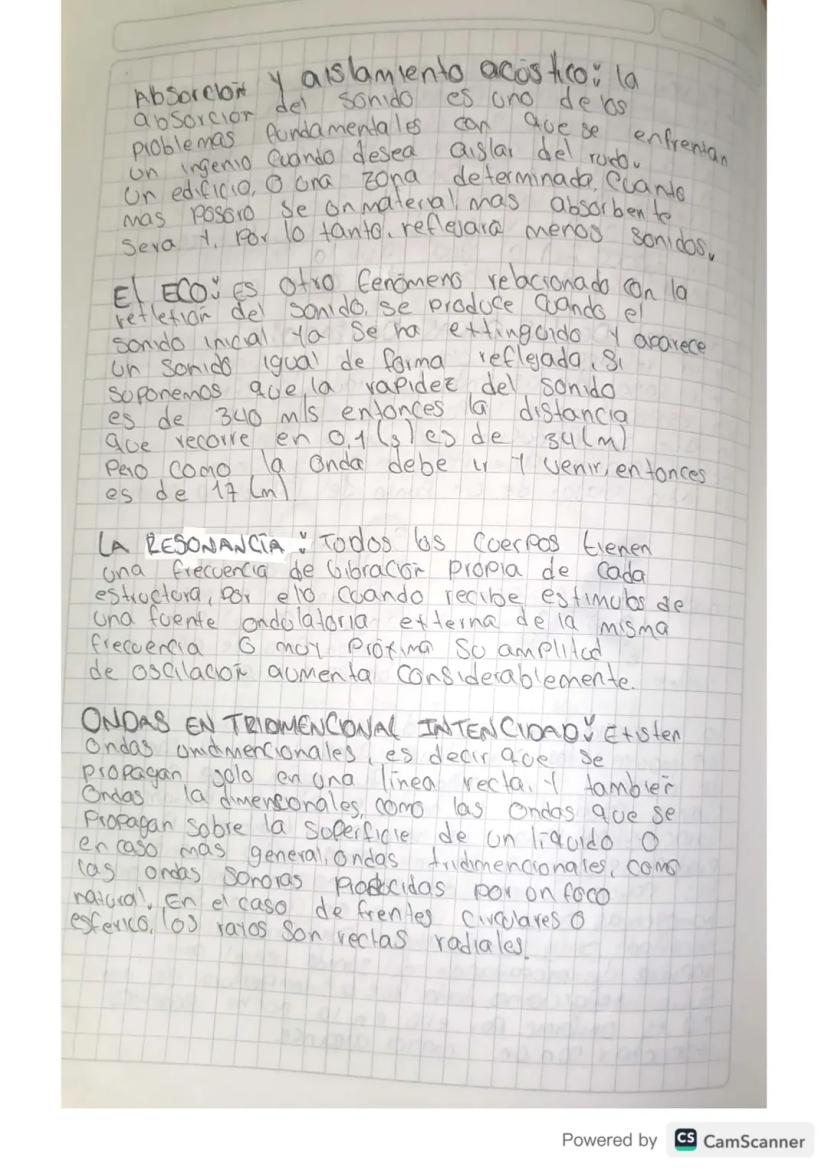 Absorcion y aislamiento acóstico: la
absorcion del sonido es uno de los
problemas fundamentales con que se enfrentan
un ingenio cuando desea aislar del ruido.
Un edificio, o una zona determinada. Cuanto
mas pososo se un material mas absorbente
sera y, por lo tanto, reflejara menos sonidos.
El ECO: Es otro fenómeno relacionado con la
reflexion del sonido, se produce cuando el
sonido inicial ya se ha extinguido y aparece
un sonido igual de forma reflejada, si
suponemos que la rapidez del sonido
es de 340 m/s entonces la distancia
que recorre en 0,1 (s) es de 34 (m)
Pero como la onda debe ir y venir, entonces
es de 17 (m)
LA RESONANCIA: Todos los cuerpos tienen
una frecuencia de vibracion propia de cada
estructura, por ello cuando recibe estimulos de
una fuente ondulatoria externa de la misma
frecuencia ó muy próxima su amplitud
de oscilación aumenta considerablemente.
ONDAS EN TRIDMENCIONAL INTENCIDAD: Existen
ondas unidimencionales, es decir que se
propagan solo en una línea recta. Y tambien
Ondas la dimensonales, como las ondas que se
Propagan sobre la superficie de un líquido o
en caso mas general, ondas tridimencionales, como
las ondas sonoras producidas por un foco
natural. En el caso de frentes circulares o
esferico, los rayos son rectas radiales.
Powered by CS CamScanner